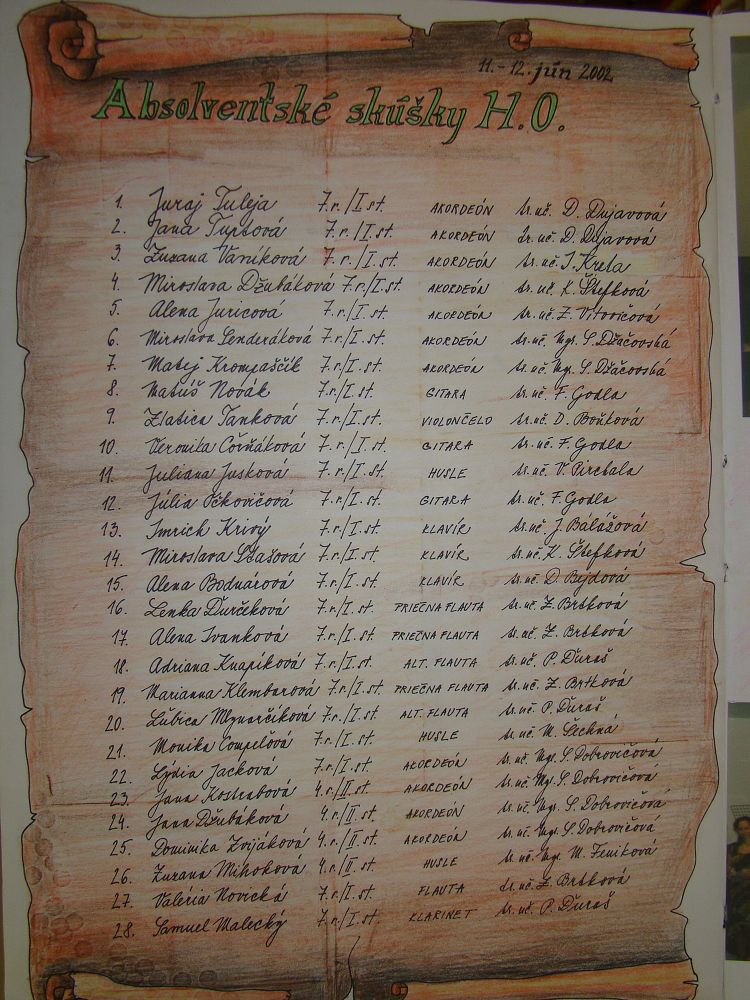 11.-12. jún 2002
Absolventské skúšky H.O.
1. Juraj Tuleja 7.r./I.st. AKORDEÓN tr.uč. D. Dujavová
2. Jana Turtová 7.r./I.st. AKORDEÓN tr.uč. D. Dujavová
3. Zuzana Vaníková 7.r./I.st. AKORDEÓN tr.uč. J. Kreta
4. Miroslava Džubáková 7.r./I.st. AKORDEÓN tr.uč. K. Štefková
5. Alena Juricová 7.r./I.st. AKORDEÓN tr.uč. Z. Vitovičová
6. Miroslava Lenderáková 7.r./I.st. AKORDEÓN tr.uč. Mgr. S. Džačovská
7. Matej Krompaščík 7.r./I.st. AKORDEÓN tr.uč. Mgr. S. Džačovská
8. Matúš Novák 7.r./I.st. GITARA tr.uč. F. Godla
9. Zlatica Tanková 7.r./I.st. VIOLONČELO tr.uč. D. Boňková
10. Veronika Čorňáková 7.r./I.st. GITARA tr.uč. F. Godla
11. Juliana Jusková 7.r./I.st. HUSLE tr.uč. V. Pirchala
12. Júlia Očkovičová 7.r./I.st. GITARA tr.uč. F. Godla
13. Imrich Krivý 7.r./I.st. KLAVÍR tr.uč. J. Balážová
14. Miroslava Stašová 7.r./I.st. KLAVÍR tr.uč. K. Štefková
15. Alena Bodnárová 7.r./I.st. KLAVÍR tr.uč. D. Bejdová
16. Lenka Ďurčeková 7.r./I.st. PRIEČNA FLAUTA tr.uč. Z. Brtková
17. Alena Ivanková 7.r./I.st. PRIEČNA FLAUTA tr.uč. Z. Brtková
18. Adriana Knapíková 7.r./I.st. ALT. FLAUTA tr.uč. P. Ďuraš
19. Marianna Klembarová 7.r./I.st. PRIEČNA FLAUTA tr.uč. Z. Brtková
20. Ľubica Mlynarčíková 7.r./I.st. ALT. FLAUTA tr.uč. P. Ďuraš
21. Monika 7.r./I.st. HUSLE tr.uč. M.
22. Lýdia Jacková 7.r./I.st. AKORDEÓN tr.uč. Mgr. S. Dobrovičová
23. Jana Kostrabová 4.r./II.st. AKORDEÓN tr.uč. Mgr. S. Dobrovičová
24. Jana Džubáková 4.r./II.st. AKORDEÓN tr.uč. Mgr. S. Dobrovičová
25. Dominika Zvijáková 4.r./II.st. AKORDEÓN tr.uč. Mgr. S. Dobrovičová
26. Zuzana Mihoková 4.r./II.st. HUSLE tr.uč. Mgr. M. Feníková
27. Valéria Novická 7.r./I.st. FLAUTA tr.uč. Z. Brtková
28. Samuel Malecký 7.r./I.st. KLARINET tr.uč. P. Ďuraš